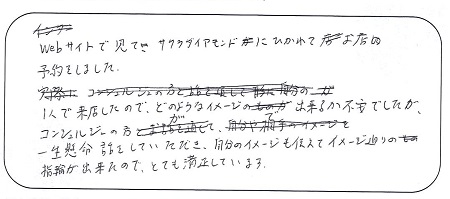 Webサイトで見て サクラダイアモンドにひかれて お店の
予約をしました。
1人で来店したので、どのようなイメージの 出来るか不安でしたが、
コンシェルジュの方が
一生懸命 話をしていただき、自分のイメージも伝えてイメージ通りの
指輪が出来たので、とても満足しています。